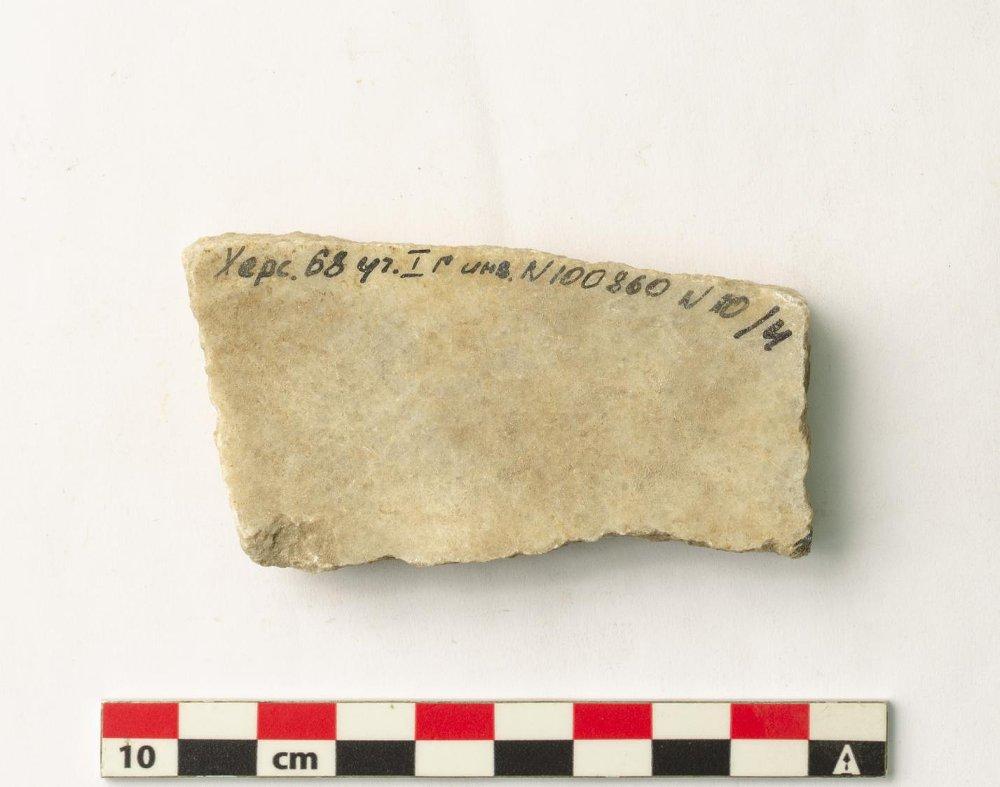 Херс. 68 уч. I г инв. N 100860 N 10/4
10 cm